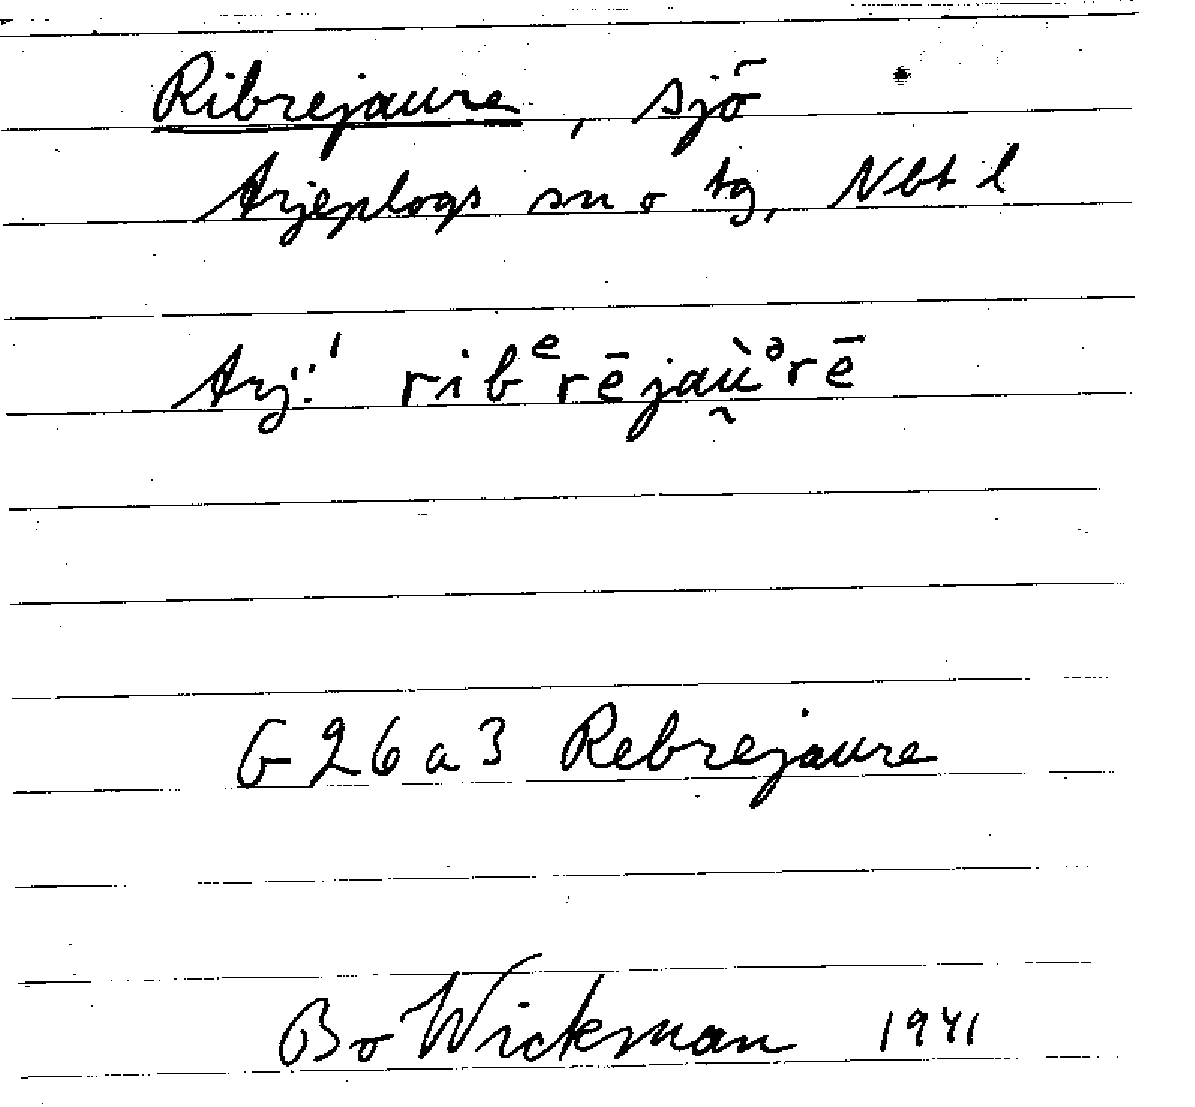 Ribrejaure, sjö
Arjeplogs sn o tg, Nbt l
Arj:' ribᵉrējaù̯ᵊrē
G 26 a 3 Rebrejaure
Bo Wickman 1941